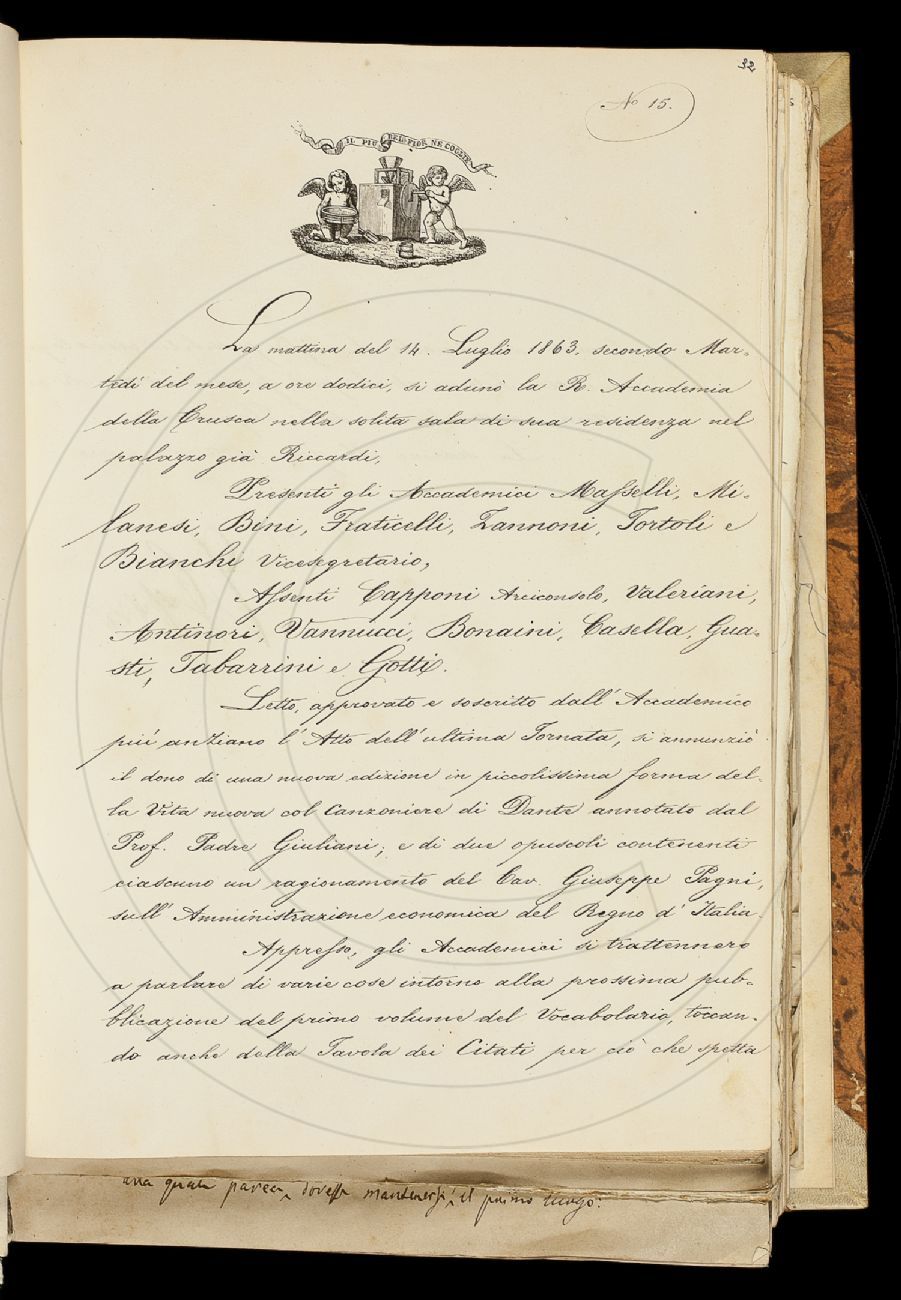 32
No 15.
IL PIÙ BEL FIOR NE COGLIE
La mattina del 14. Luglio 1863, secondo Mar-
tedì del mese, a ore dodici, si adunò la R. Accademia
della Crusca nella solita sala di sua residenza nel
palazzo già Riccardi,
Presenti gli Accademici Masselli, Mi-
lanesi, Bini, Fraticelli, Zannoni, Tortoli e
Bianchi Vicesegretario,
Assenti Capponi Arciconsolo, Valeriani,
Antinori, Vannucci, Bonaini, Casella, Gua-
sti, Tabarrini e Gotti.
Letto, approvato e soscritto dall' Accademico
più anziano l' Atto dell' ultima Tornata, si annunziò
il dono di una nuova edizione in piccolissima forma del-
la Vita nuova col Canzoniere di Dante annotato dal
Prof. Padre Giuliani; e di due opuscoli contenenti
ciascuno un ragionamento del Cav. Giuseppe Pagni,
sull' Amministrazione economica del Regno d' Italia.
Appresso, gli Accademici si trattennero
a parlare di varie cose intorno alla prossima pub-
blicazione del primo volume del Vocabolario, toccan-
do anche della Tavola dei Citati per ciò che spetta
quale dovesse mantenersi il primo luogo.